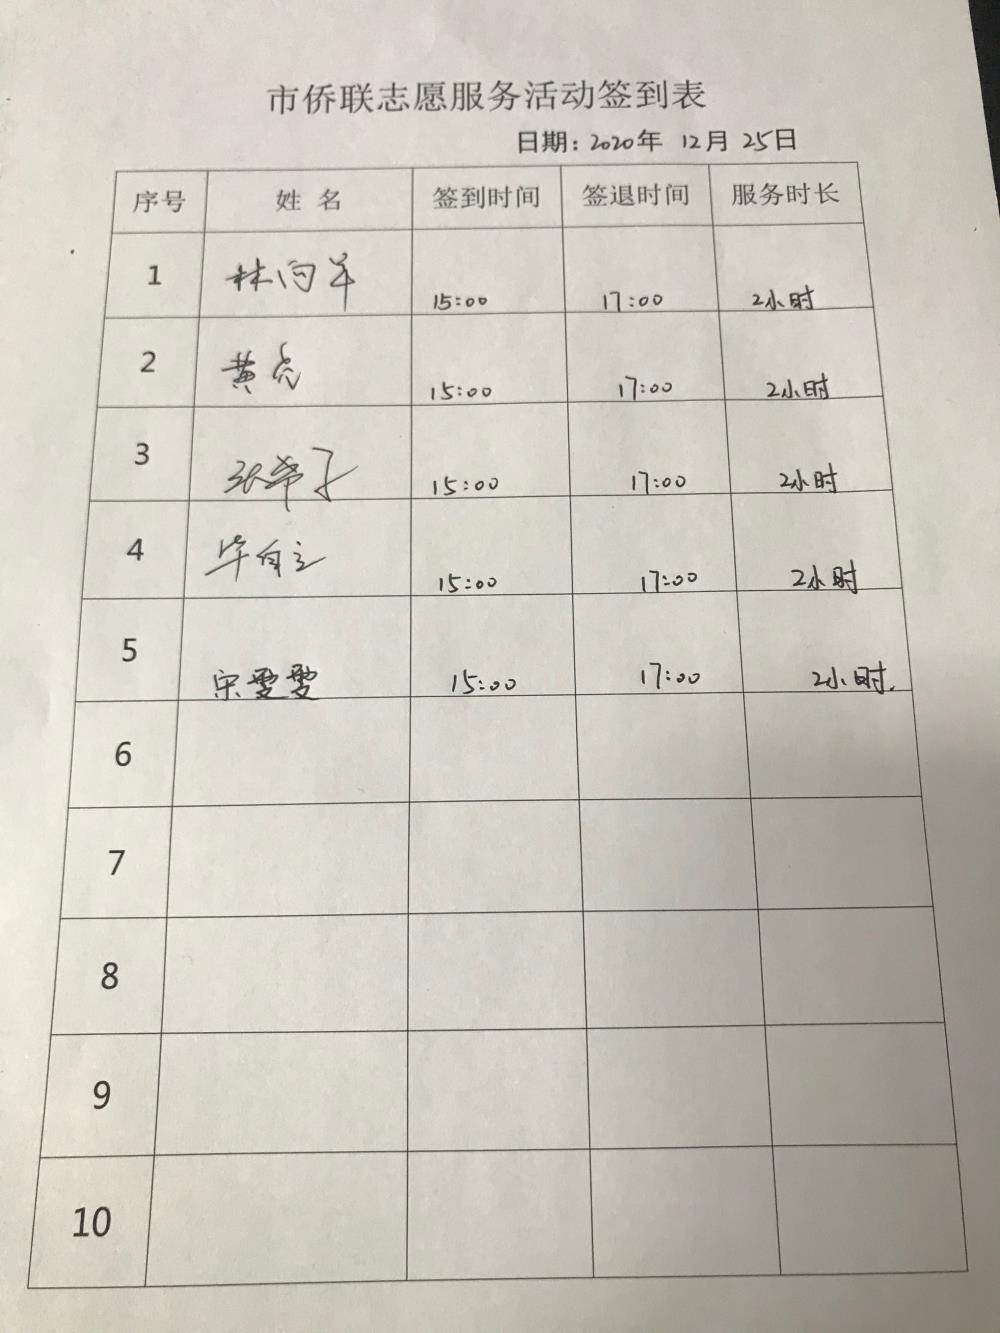 市侨联志愿服务活动签到表
日期: 2020年 12月 25日
序号 姓 名 签到时间 签退时间 服务时长
1 林向羊 15:00 17:00 2小时
2 黄亮 15:00 17:00 2小时
3 张希子 15:00 17:00 2小时
4 毕自立 15:00 17:00 2小时
5 宋雯雯 15:00 17:00 2小时.
6
7
8
9
10